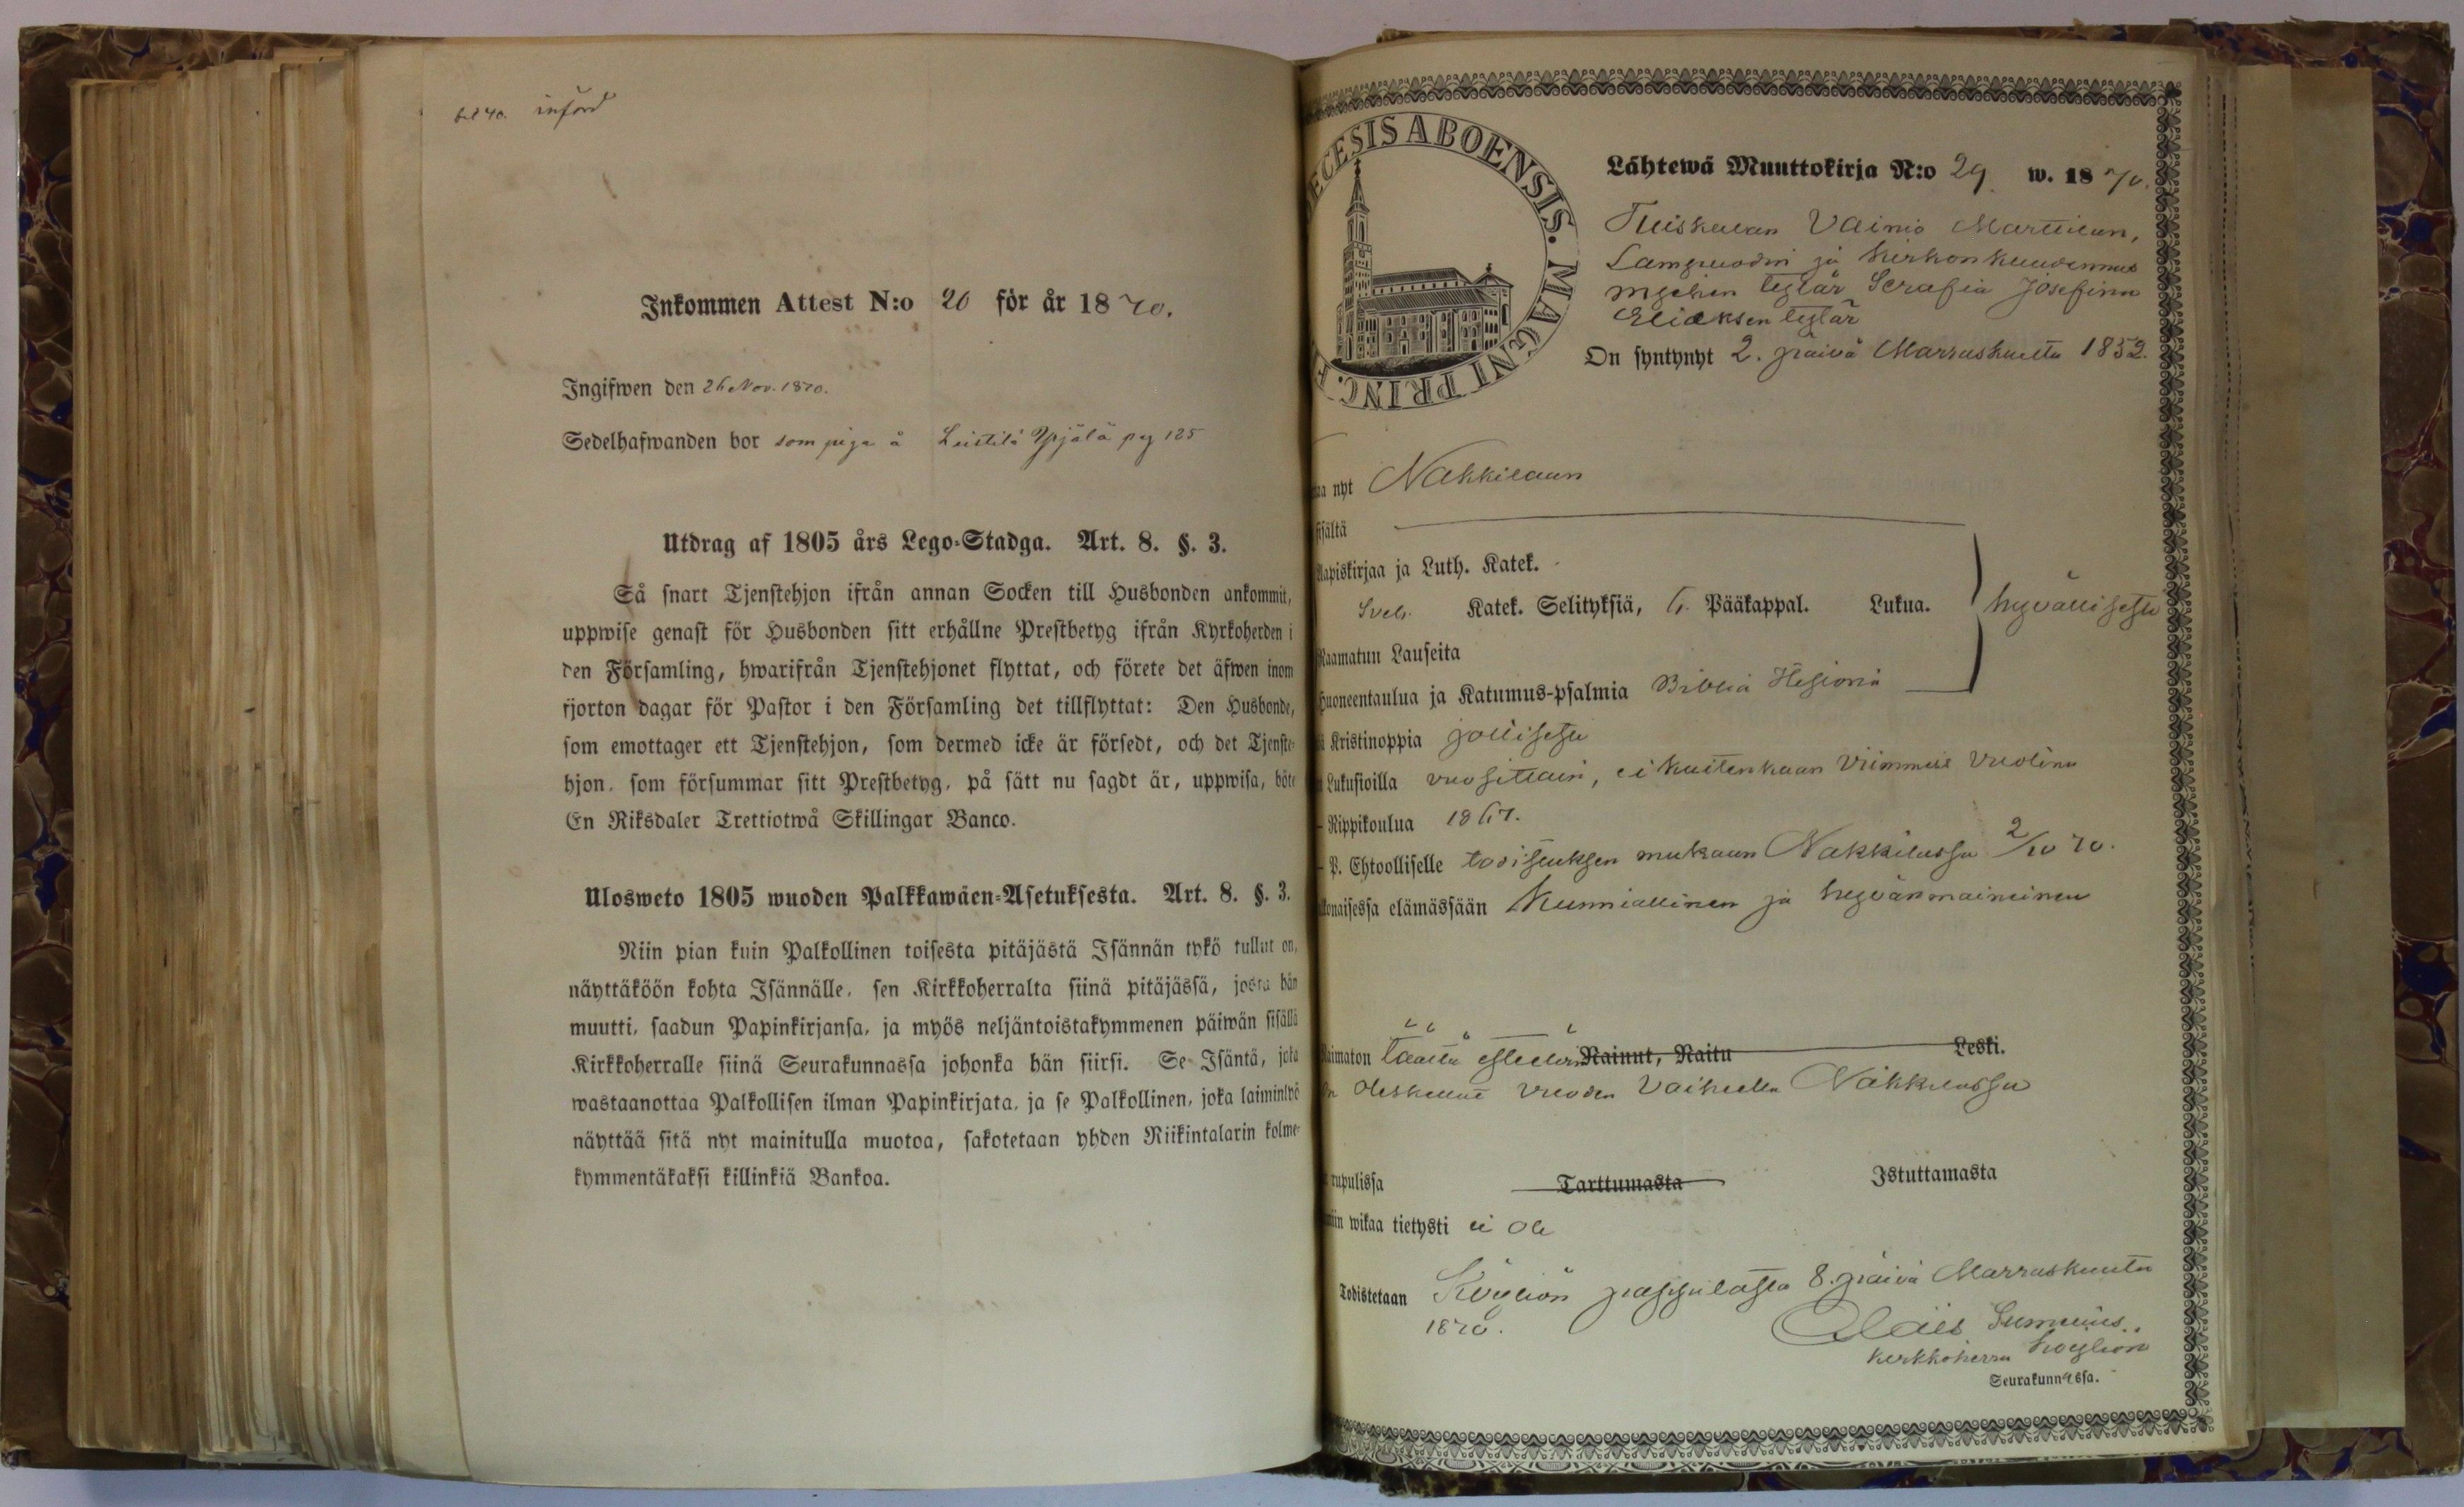 införd
Inkommen Attest N:o 20 för år 1870.
Ingifwen den 26 Nov. 1870.
Sedelhafwanden bor som piga å Leistilä Ypjälä pag 125
Utdrag af 1805 års Lego-Stadga. Art. 8. §. 3.
Så snart Tjenstehjon ifrån annan Socken till Husbonden ankommit,
uppwise genast för Husbonden sitt erhållne Prestbetyg ifrån Kyrkoherden i
den Församling, hwarifrån Tjenstehjonet flyttat, och förete det äfwen inom
fjorton dagar för Pastor i den Församling det tillflyttat: Den Husbonde,
som emottager ett Tjenstehjon, som dermed icke är försedt, och det Tjenste-
hjon, som försummar sitt Prestbetyg, på sätt nu sagdt är, uppwisa, böte
En Riksdaler Trettiotwå Skillingar Banco.
Ulosweto 1805 wuoden Palkkawäen-Asetuksesta. Art. 8. §. 3.
Niin pian kuin Palkollinen toisesta pitäjästä Isännän tykö tullut on,
näyttäköön kohta Isännälle, sen Kirkkoherralta siinä pitäjässä, josta hän
muutti, saadun Papinkirjansa, ja myös neljäntoistakymmenen päiwän sisällä
Kirkkoherralle siinä Seurakunnassa johonka hän siirsi. Se Isäntä, jota
wastaanottaa Palkollisen ilman Papinkirjata, ja se Palkollinen, joka laiminlyö
näyttää sitä nyt mainitulla muotoa, sakotetaan yhden Riikintalarin kolme-
kymmentäkaksi killinkiä Bankoa.
ECESIS ABOENSIS. MAGNI PRINC. F
Lähtewä Muuttokirja N:o 29 w. 1870.
Tuiskulan Vainio Marttilan,
Lampuodin ja kirkonkuudennus
miehen tytär Serafia Josefina
Eliaksen tytär
On syntynyt 2. päivä Marraskuuta 1852.
aa nyt Nakkilaan
sisältä
Aapiskirjaa ja Luth. Katek.
Sveb. Katek. Selityksiä, 6. Pääkappal. Lukua. hyvällisesti
Raamatun Lauseita
Huoneentaulua ja Katumus-psalmia Biblia Historia
Kristinoppia jollisesti
Lukusioilla vuosittain, ei kuitenkaan viimmeis vuotina
Rippikoulua 1867.
P. Ehtoolliselle todistuksen mukaan Nakkilassa 2/10 70.
konaisessa elämässään Kunniallinen ja hyvänmaineinen
Naimaton täältä esteetön Nainut, Naitu Leski.
On oleskellut vuoden vaiheella Nakkilassa
rupulissa Tarttumasta Istuttamasta
wikaa tietysti ei ole
Todistetaan Köyliön pappilasta 8. päivä Marraskuuta
1870.
Summelius.
Kirkkoherra Köyliön
Seurakunnassa.